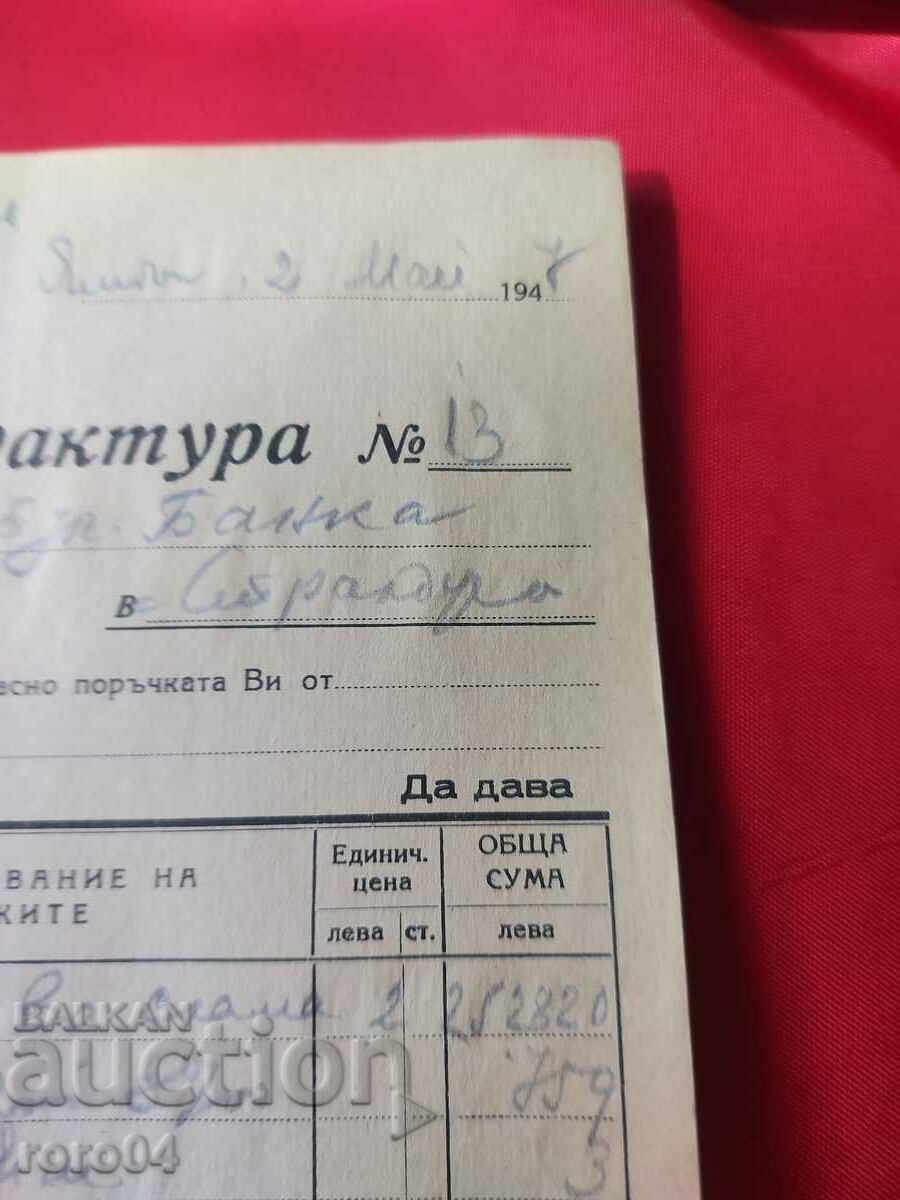 Ямбол. 2 Май 1947
рактура № 13
Банка
в
асно поръчката Ви от
Да дава
ОВАНИЕ НА
КИТЕ
Единич. цена
ОБЩА СУМА
лева ст. лева
2 252820
759
3
BALKAN
auction
roro04